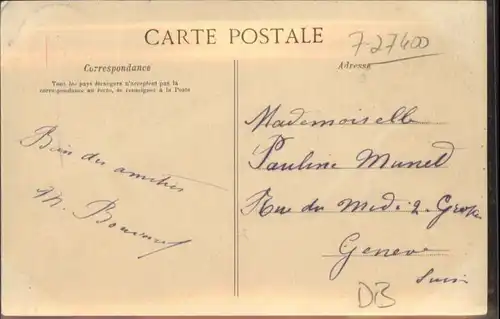 CARTE POSTALE
7-27400
Correspondance
Tous les pays étrangers n'acceptent pas la
correspondance au recto, se renseigner à la Poste
Adresse
Bien des amitiés
M.
Mademoiselle
Pauline
Rue du Midi 2
Genève
Suisse
DB